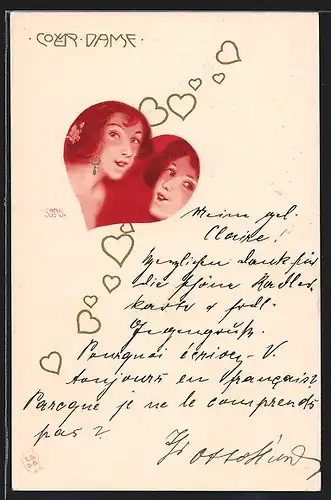 COEUR-DAME
Meine gel.
Claire!
Herzlichen Dank für
die schöne Radler
karte u frdl.
Gegengruß.
Pourquoi écrivez-V.
toujours en français?
Parceque je ne le comprends
pas?